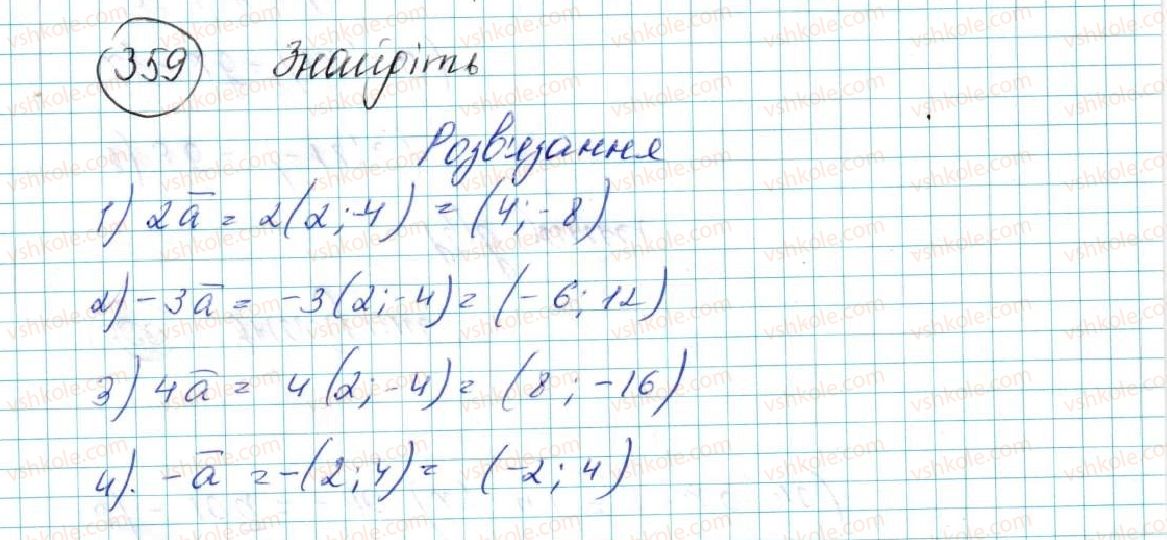 359 Знайдіть
Розв'язання
1) 2a̅ = 2(2;-4) = (4;-8)
2) -3a̅ = -3(2;-4) = (-6;12)
3) 4a̅ = 4(2;-4) = (8;-16)
4). -a̅ = -(2;4) = (-2;4)